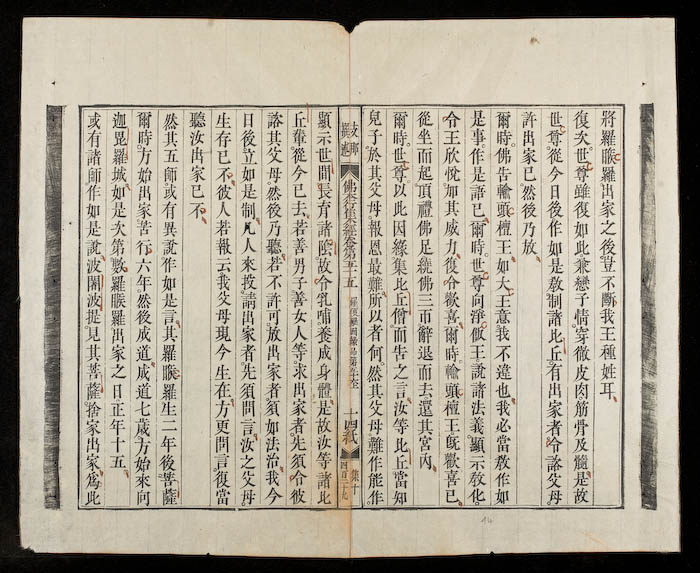 將羅睺羅出家之後豈不斷我王種姓耳
復次世尊雖復如此兼戀子情穿徹皮肉筋骨及髓是故
世尊從今日後作如是教制諸比丘有出家者令諮父母
許出家已然後乃放
爾時佛告輸頭檀王如大王意我不違也我必當教作如
是事作是語已爾時世尊向淨飯王說諸法義顯示教化
令王欣悅如其威力復令歡喜爾時輸頭檀王旣歡喜已
從坐而起頂禮佛足繞佛三帀辭退而去還其宮內
爾時世尊以此因緣集比丘僧而告之言汝等比丘當知
兒子於其父母報恩最難所以者何然其父母難作能作
支那撰述 佛本行集經卷第五十五 羅睺羅因緣品第五十六 十四紙 四百二十九 集十
顯示世間長育諸陰故令乳哺養成身體是故汝等諸比
丘輩從今已去若善男子善女人等求出家者先須令彼
諮其父母然後乃聽若不許可放出家者須如法治我今
日後立如是制凡人來投請出家者先須問言汝之父母
生存已不彼人若報云我父母現今生在方更問言復當
聽汝出家已不
然其五師或有異說作如是言其羅睺羅生二年後菩薩
爾時方始出家苦行六年然後成道成道七歲方始來向
迦毘羅城如是次第數羅睺羅出家之日正年十五
或有諸師作如是說波闍波提見其菩薩捨家出家爲此
14